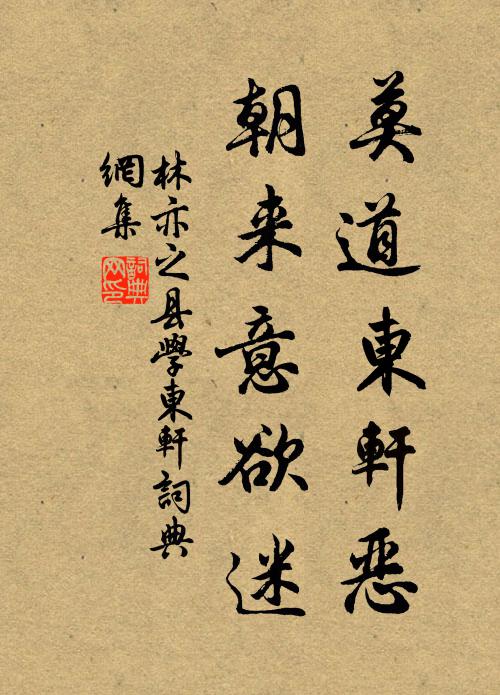 莫道東軒惡
朝来意欲迷
林亦之县學東軒詞典
網集
詞典
网印